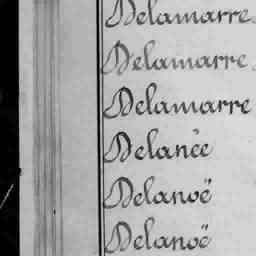 Delamarre
Delamarre
Delamarre
Delanêe
Delanoë
Delanoë